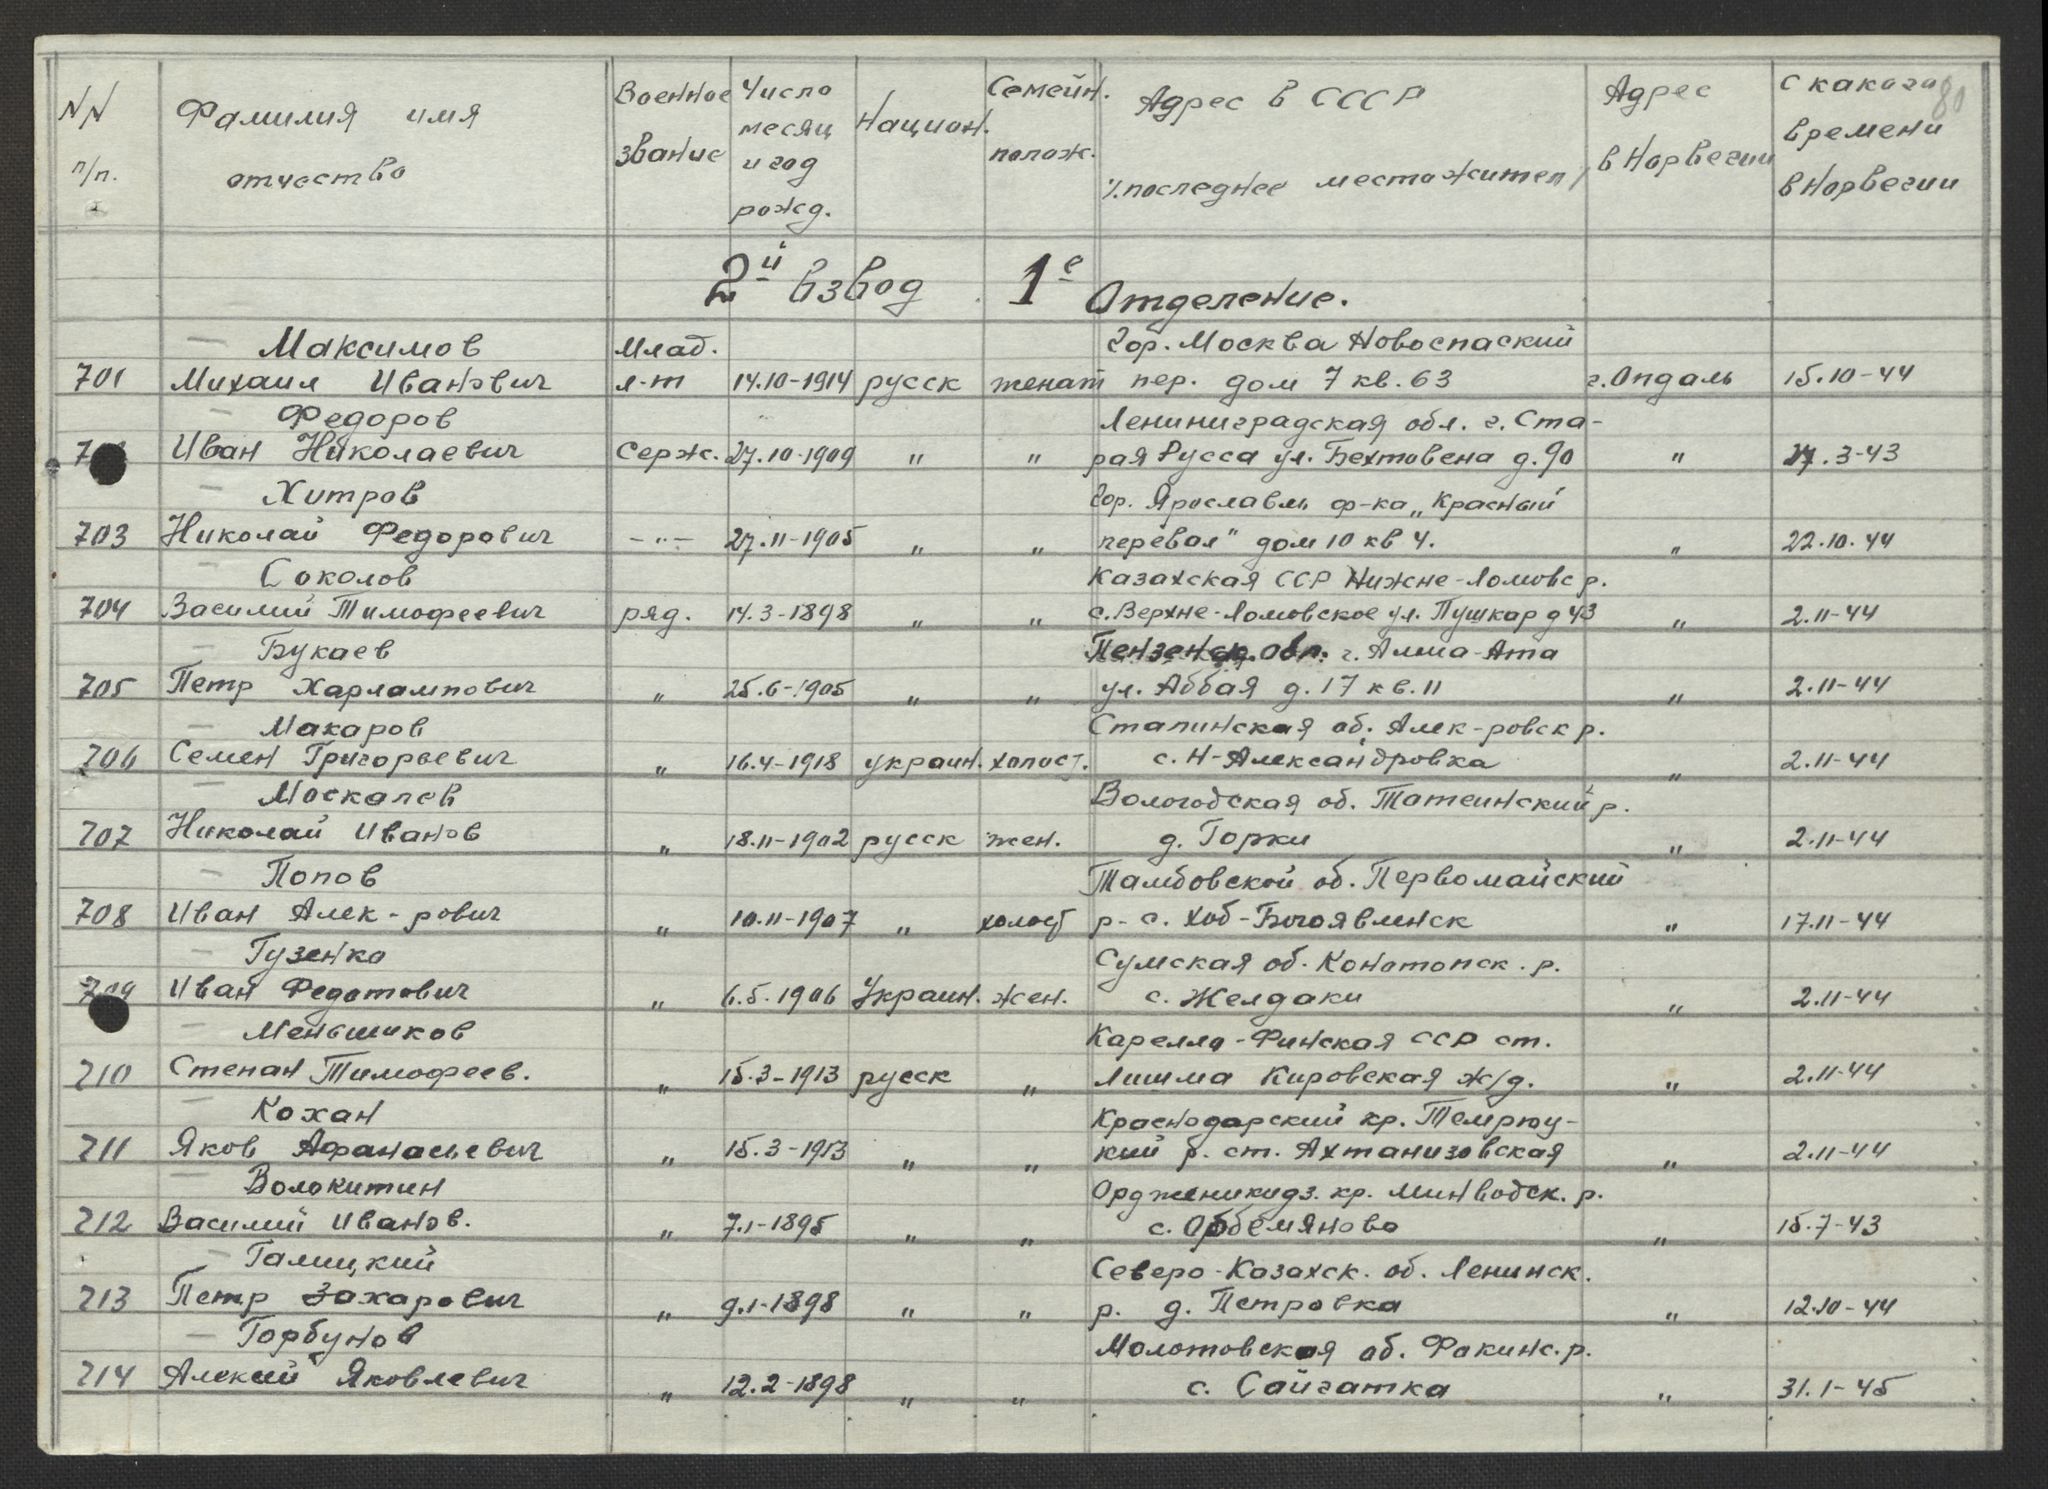 NN п/п. Фамилия имя отчество Военное звание Число месяц и год рожд. Национ. Семейн. полож. Адрес в СССР /последнее местожител/ Адрес в Норвегии с какого времени в Норвегии
80
2й взвод 1е Отделение.
Максимов Млад. Гор. Москва Новоспаский
701 Михаил Иванович л-т 14.10-1914 русск женат пер. дом 7 кв. 63 г. Опдаль 15.10-44
Федоров Лениниградская обл. г. Ста-
Иван Николаевич Серж. 27.10-1909 " " рая Русса ул. Бехтовена д. 90 " 27.3-43
Хитров Гор. Ярославль ф-ка „Красный
703 Николай Федорович -"- 27.11-1905 " " перевал" дом 10 кв 4. " 22.10.44
Соколов Казахская ССР Нижне-Ломовс р.
704 Василий Тимофеевич ряд. 14.3-1898 " " с. Верхне-Ломовское ул. Пушкар д 43 " 2.11-44
Букаев Пензенск. обл. г. Алма-Ата
705 Петр Харлампович " 25.6-1905 " " ул. Аббая д. 17 кв. 11 " 2.11-44
Макаров Сталинская об. Алек-ровск р.
706 Семен Григорьевич " 16.4-1918 украин. холост. с. Н-Александровка " 2.11-44
Москалев Вологодская об. Татеинский р.
707 Николай Иванов " 18.11-1902 русск жен. д. Горки " 2.11-44
Попов Тамбовской об. Первомайский
708 Иван Алек-рович " 10.11-1907 " холост р-с. Хоб-Богоявленск " 17.11-44
Гузенко Сумская об. Конотопск. р.
709 Иван Федотович " 6.5.1906 Украин. жен. с. Желдаки " 2.11-44
Меньшиков Карелло-Финская ССР ст.
710 Степан Тимофеев. " 15.3-1913 русск " Лишма Кировская ж/д. " 2.11-44
Кохан Краснодарский кр. Темрюу-
711 Яков Афанасьевич " 15.3-1913 " " кий р. ст. Ахтанизовская " 2.11-44
Волокитин Ордженикидз. кр. Минводск. р.
712 Василий Иванов. " 7.1-1895 " " с. " 15.7-43
Галицкий Северо-Казахск. об. Ленинск.
713 Петр Захарович " 9.1-1898 " " р. д. Петровка " 12.10-44
Горбунов Молотовская об. Факинс. р.
714 Алексей Яковлевич " 12.2-1898 " " с. Сайгатка " 31.1-45